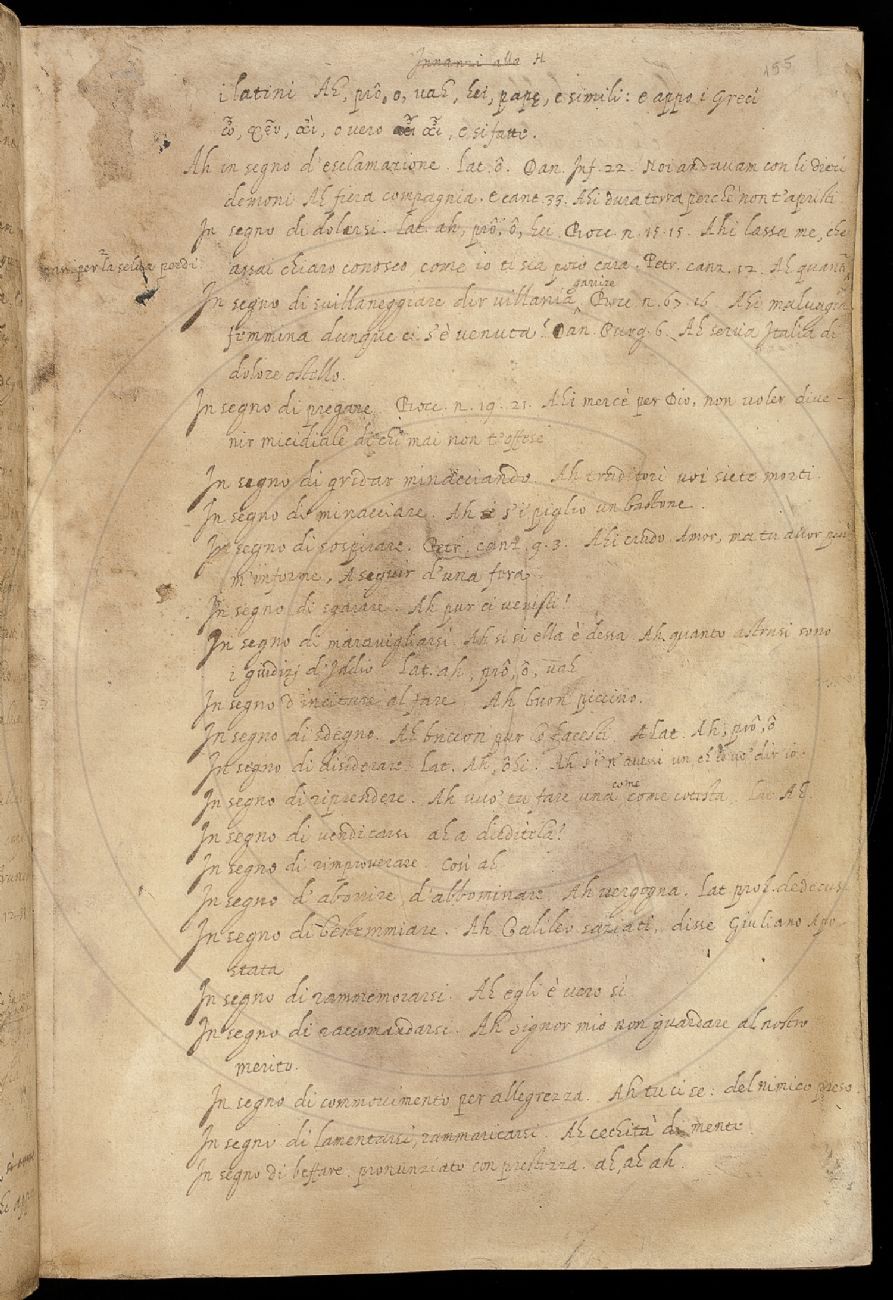 Innanzi alla H
155
i latini Ah, prô, o, vah, hei, papę, e simili: e appo i Greci
φεῦ, o vero e si fatte.
Ah in segno d'esclamazione. Lat. ô. Dan. Inf. 22. Noi andavam con li dieci
demoni Ah fiera compagnia. e cant. 33. Ahi dura terra perchè non t'apristi
In segno di dolersi. Lat. ah, prô, ô, hei Bocc. n. 15. 15. Ahi lassa me, che
per la selva
assai chiaro conosco, come io ti sia poco cara. Petr. canz. 12. Ah quanta
garrire
In segno di svillaneggiare dir villania, Bocc. n. 67. 16. Ahi malvagia
femmina dunque ci s'è venuta! Dan. Purg. 6. Ah serva Italia di
dolore ostello.
In segno di pregare. Bocc. n. 19. 21. Ahi mercè per Dio, non voler dive-
nir micidiale di chi mai non t'offese
In segno di gridar minacciando. Ah traditori voi siete morti.
In segno di minacciare. Ah s'i piglio un bastone.
In segno di sospirare. Petr. canz. 9. 3. Ahi crudo Amor, ma tu allor più
m'informe, A seguir d'una fera
In segno di sgarare. Ah pur ci venisti!
In segno di maravigliarsi. Ah si si ella è dessa Ah quanto astrusi sono
i giudizj d'Iddio Lat. ah, prô, ô, vah
In segno d'incitare al fare Ah buon piccino.
In segno di sdegno. Ah briccon pur lo facesti. Lat. Ah, prô, ô
In segno di disiderare. Lat. Ah, Ah s'i' n'avessi un ch lo vo' dir io.
come
In segno di riprendere. Ah vuo' tu fare una come cotesta Lat Ah.
In segno di vendicarsi ah a dieditela!
In segno di rimproverare. Così ah
In segno d'aborrire, d'abbominare Ah vergogna. Lat proh dedecus.
In segno di bestemmiare. Ah Galileo saziati, disse Giuliano Apo-
stata
In segno di rammemorarsi. Ah egli è vero sì
In segno di raccomandarsi. Ah Signor mio non guardare al nostro
merito.
In segno di commovimento per allegrezza. Ah tu ci se: del nimico preso.
In segno di lamentarsi, rammaricarsi. Ah cechità di mente
In segno di beffare pronunziato con prestezza. ah, ah ah.